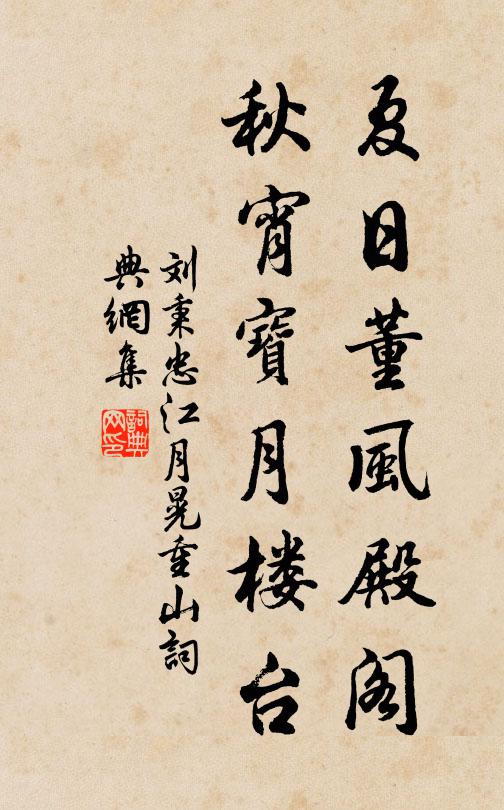 夏日董風殿阁
秋宵寶月楼台
刘秉忠江月晃重山詞
典網集
詞典
网印